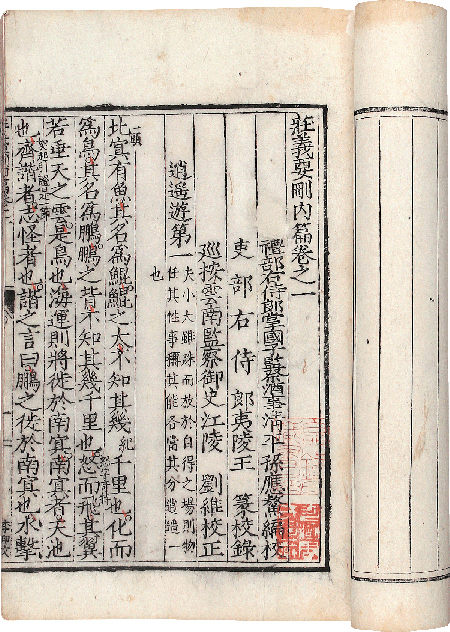 莊義要刪內篇卷之一
禮部右侍郎掌國子監祭酒事清平孫應鰲編校
吏部右侍郎夷陵王篆校錄
巡按雲南監察御史江陵劉維校正
逍遙遊第一
夫小大雖殊而放於自得之場則物
任其性事稱其能各當其分逍遙一
也
北冥有魚其名為鯤鯤之大不知其幾千里也化而
為鳥其名為鵬鵬之背不知其幾千里也怒而飛其翼
若垂天之雲是鳥也海運則將徙於南冥南冥者天池
也齊諧者志怪者也諧之言曰鵬之徙於南冥也水擊